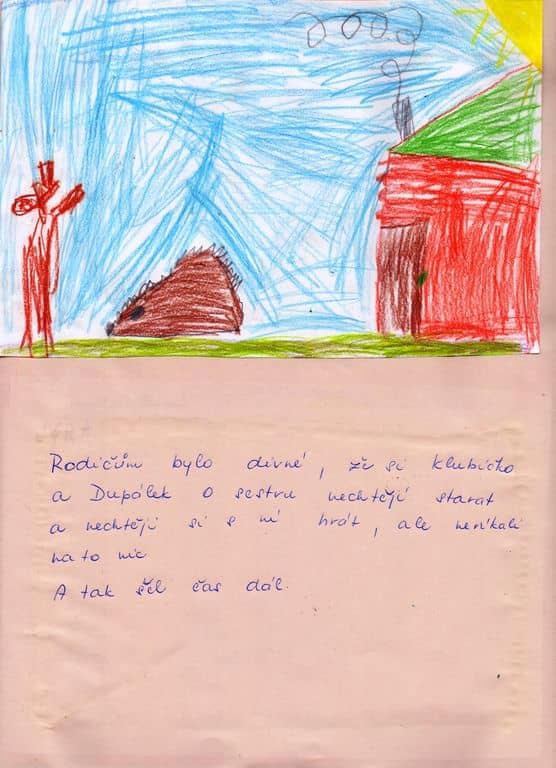 Rodičům bylo divné, že si Klubíčko
a Dupálek o sestru nechtějí starat
a nechtějí si s ní hrát, ale neříkali
na to nic
A tak šel čas dál.